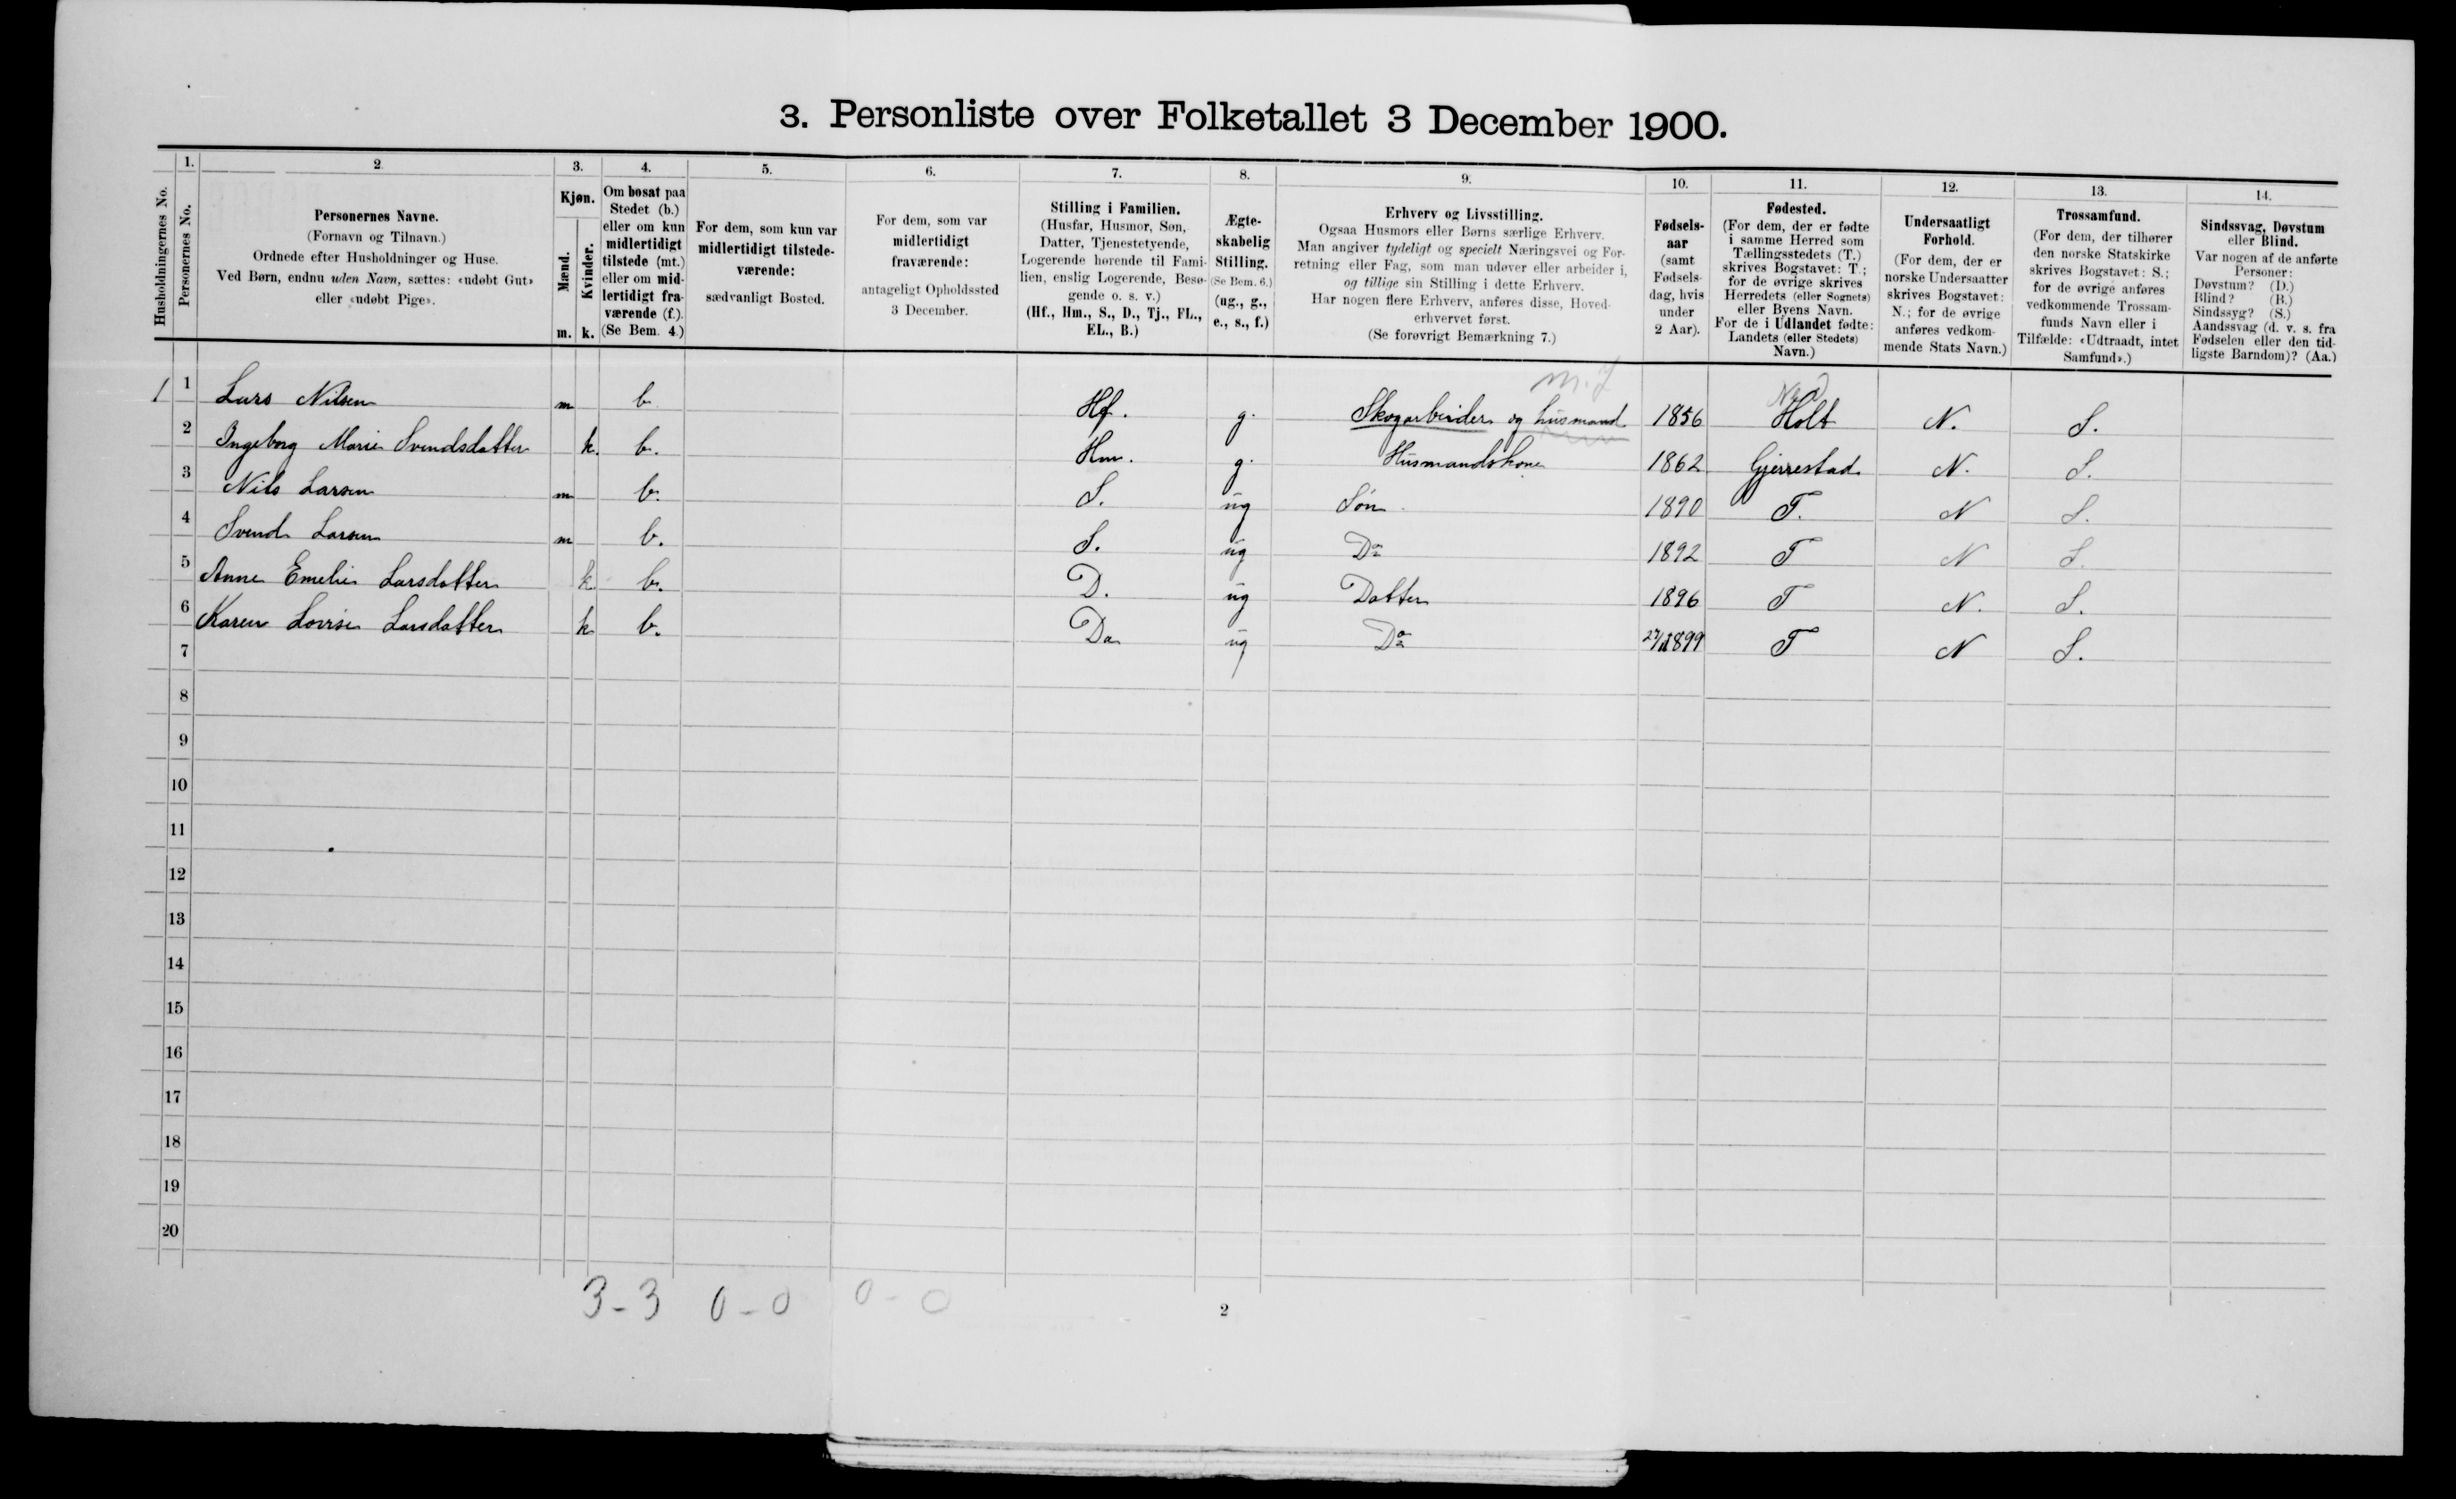 3. Personliste over Folketallet 3 December 1900.
1. 2. 3. 4. 5. 6. 7. 8. 9. 10. 11. 12. 13. 14.
Husholdningernes No.
Personernes No.
Personernes Navne.
(Fornavn og Tilnavn.)
Ordnede efter Husholdninger og Huse.
Ved Børn, endnu uden Navn, sættes: «udøbt Gut»
eller «udøbt Pige».
Kjøn.
Mænd.
m.
Kvinder.
k.
Om bosat paa
Stedet (b.)
eller om kun
midlertidigt
tilstede (mt.)
eller om mid-
lertidigt fra-
værende (f.).
(Se Bem. 4.)
For dem, som kun var
midlertidigt tilstede-
værende:
sædvanligt Bosted.
For dem, som var
midlertidigt
fraværende:
antageligt Opholdssted
3 December.
Stilling i Familien.
(Husfar, Husmor, Søn,
Datter, Tjenestetyende,
Logerende hørende til Fami-
lien, enslig Logerende, Besø-
gende o. s. v.)
(Hf., Hm., S., D., Tj., FL.,
EL., B.)
Ægte-
skabelig
Stilling.
(Se Bem. 6.)
(ug., g.,
e., s., f.)
Erhverv og Livsstilling.
Ogsaa Husmors eller Børns særlige Erhverv.
Man angiver tydeligt og specielt Næringsvei og For-
retning eller Fag, som man udøver eller arbeider i,
og tillige sin Stilling i dette Erhverv.
Har nogen flere Erhverv, anføres disse, Hoved-
erhvervet først.
(Se forøvrigt Bemærkning 7.)
Fødsels-
aar
(samt
Fødsels-
dag, hvis
under
2 Aar).
Fødested.
(For dem, der er fødte
i samme Herred som
Tællingsstedets (T.)
skrives Bogstavet: T.;
for de øvrige skrives
Herredets (eller Sognets)
eller Byens Navn.
For de i Udlandet fødte:
Landets (eller Stedets)
Navn.)
Undersaatligt
Forhold.
(For dem, der er
norske Undersaatter
skrives Bogstavet:
N.; for de øvrige
anføres vedkom-
mende Stats Navn.)
Trossamfund.
(For dem, der tilhører
den norske Statskirke
skrives Bogstavet: S.;
for de øvrige anføres
vedkommende Trossam-
funds Navn eller i
Tilfælde: «Udtraadt, intet
Samfund».)
Sindssvag, Døvstum
eller Blind.
Var nogen af de anførte
Personer:
Døvstum? (D.)
Blind? (B.)
Sindssyg? (S.)
Aandssvag (d. v. s. fra
Fødselen eller den tid-
ligste Barndom)? (Aa.)
1 1 Lars Nilsen m b Hf. g. Skogarbeider og husmand 1856 Holt N. S.
2 Ingeborg Marie Svendsdatter k. b. Hm. g. Husmandskone 1862 Gjerrestad N. S.
3 Nils Larsen m b. S. ug Søn 1890 T. N S.
4 Svend Larsen m b. S. ug Do 1892 T N S.
5 Anne Emelie Larsdatter k b. D. ug Datter 1896 T N. S.
6 Karen Lovise Larsdatter k b. Do ug Do 1899 T N S.
7
8
9
10
11
12
13
14
15
16
17
18
19
20
3-3 0-0 0-0
2